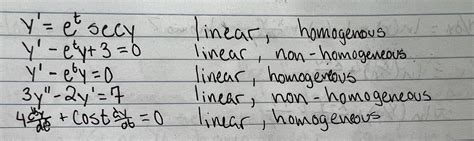 y' = e^t sec y linear, homogenous
y' - e^t y + 3 = 0 linear, non-homogeneous
y' - e^t y = 0 linear, homogeneous
3y" - 2y' = 7 linear, non-homogeneous
4 dy/dt + cos t dy/dt = 0 linear, homogeneous